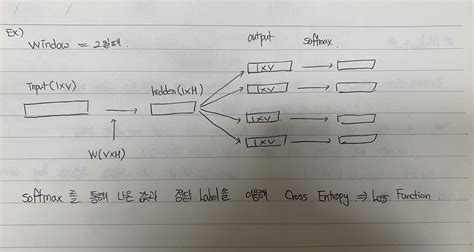 Ex)
window = 2일때.
output softmax.
Input(1xV) hidden(1xH)
1xV
1xV
1xV
1xV
W(VxH)
softmax를 통해 나온 값과 정답 Label을 이용해 Cross Entropy ⇒ Loss Function.